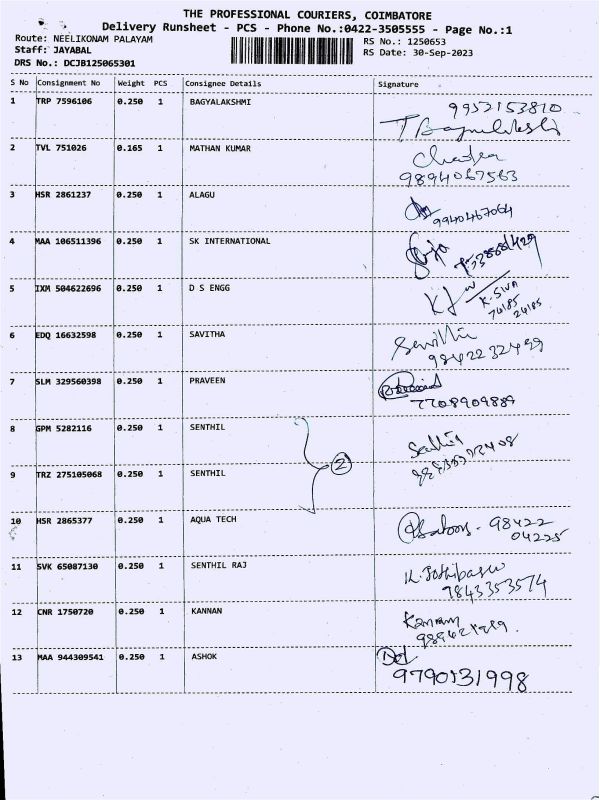 THE PROFESSIONAL COURIERS, COIMBATORE
Delivery Runsheet - PCS - Phone No.:0422-3505555 - Page No.:1
Route: NEELIKONAM PALAYAM
RS No.: 1250653
Staff: JAYABAL
RS Date: 30-Sep-2023
DRS No.: DCJB125065301
S No Consignment No Weight PCS Consignee Details Signature
1 TRP 7596106 0.250 1 BAGYALAKSHMI 9952153810
2 TVL 751026 0.165 1 MATHAN KUMAR
9894067563
3 HSR 2861237 0.250 1 ALAGU 9940467064
4 MAA 106511396 0.250 1 SK INTERNATIONAL
5 IXM 504622696 0.250 1 D S ENGG K. SIVA
74185
24185
6 EDQ 16632598 0.250 1 SAVITHA
9842232499
7 SLM 329560398 0.250 1 PRAVEEN
7708909889
8 GPM 5282116 0.250 1 SENTHIL
2
9 TRZ 275105068 0.250 1 SENTHIL
10 HSR 2865377 0.250 1 AQUA TECH - 98422
04225
11 SVK 65087130 0.250 1 SENTHIL RAJ
9843353574
12 CNR 1750720 0.250 1 KANNAN Kannan
13 MAA 944309541 0.250 1 ASHOK
9790531998